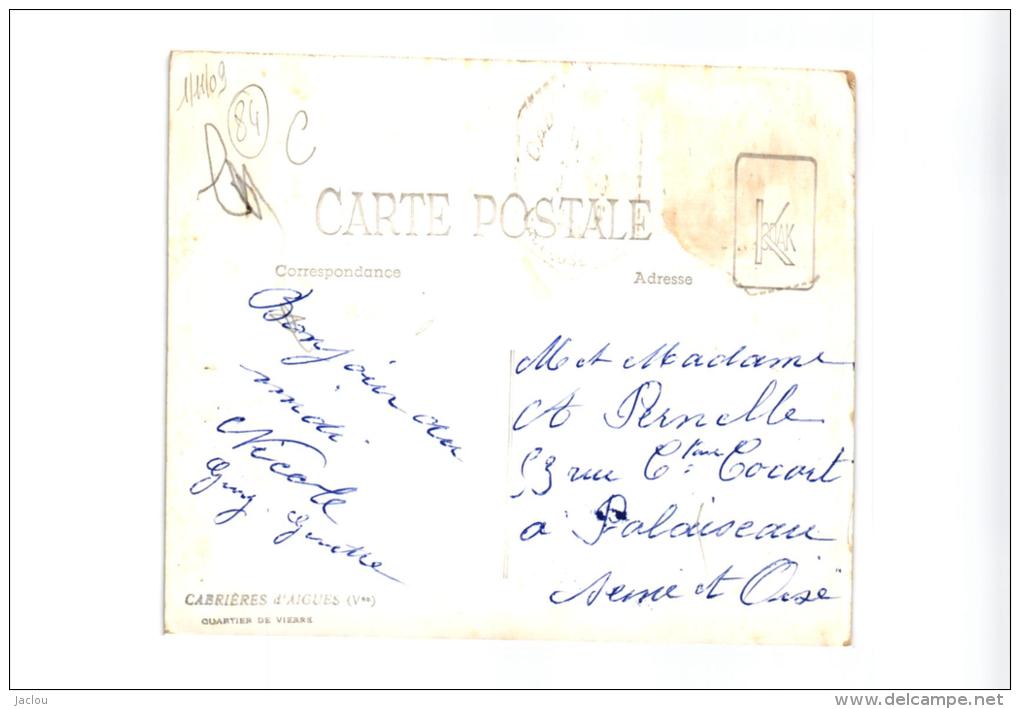 1/11/09
84
C
CARTE POSTALE
KODAK
Correspondance
Adresse
Bonjour du
midi.
Nicole
Guy. Ginette
M et Madame
A Pernelle
53 rue Cᵗᵃⁱⁿᵉ Cocart
a Palaiseau
Seine et Oise
CABRIÈRES d'AIGUES (Vse)
QUARTIER DE VIERRE
jaclou
www.delcampe.net